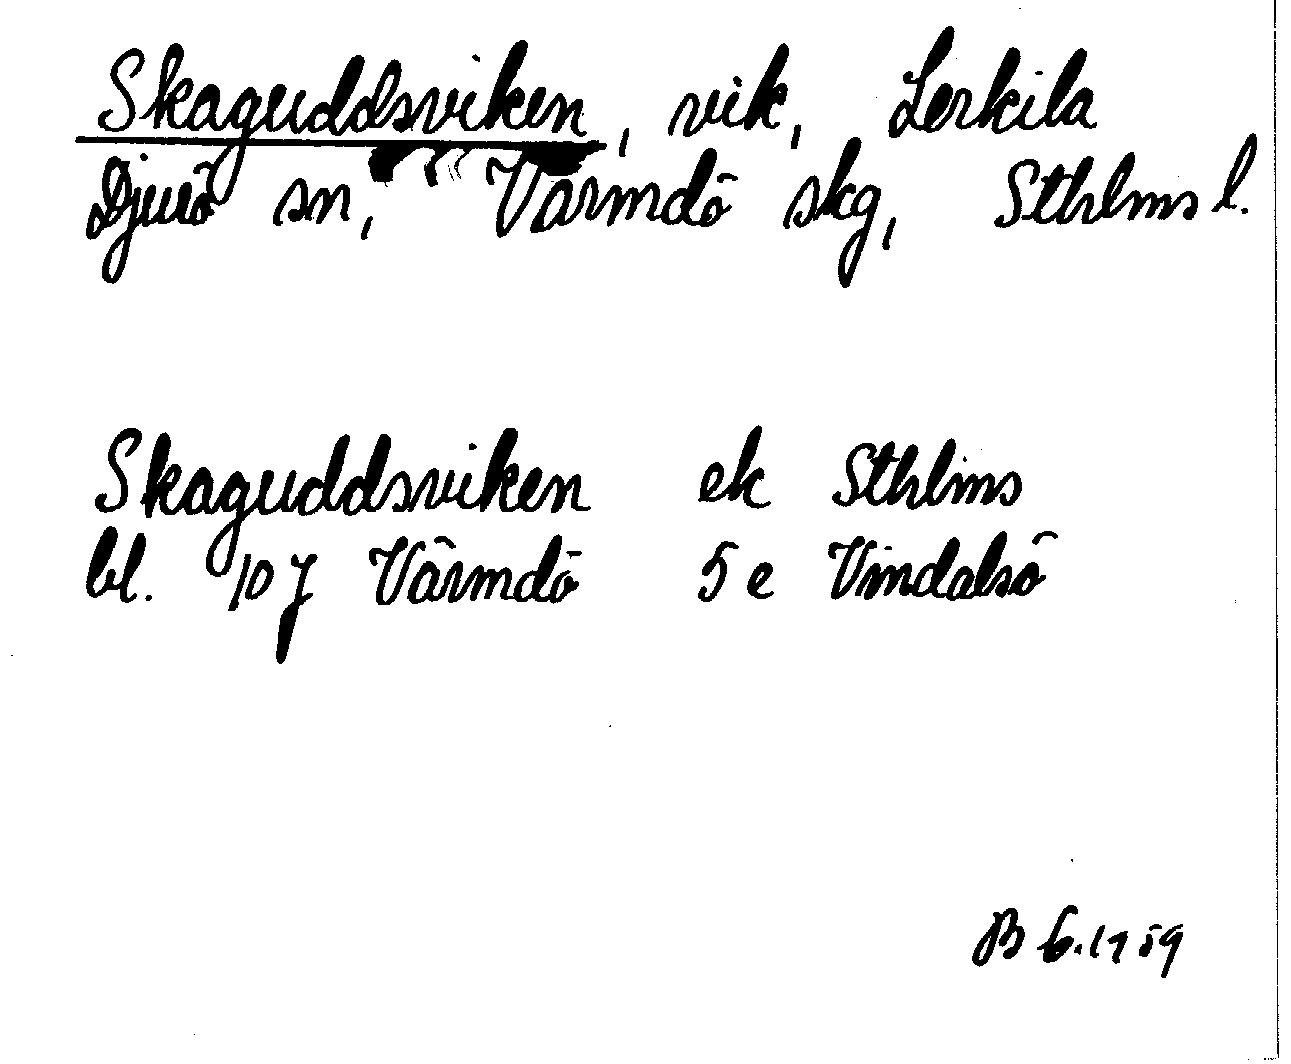 Skaguddsviken, vik, Lerkila
Djurö sn, Värmdö skg, Sthlms l.
Skaguddsviken ek Sthlms
bl. 10 J Värmdö 5 e Vindalsö
B G. 1959